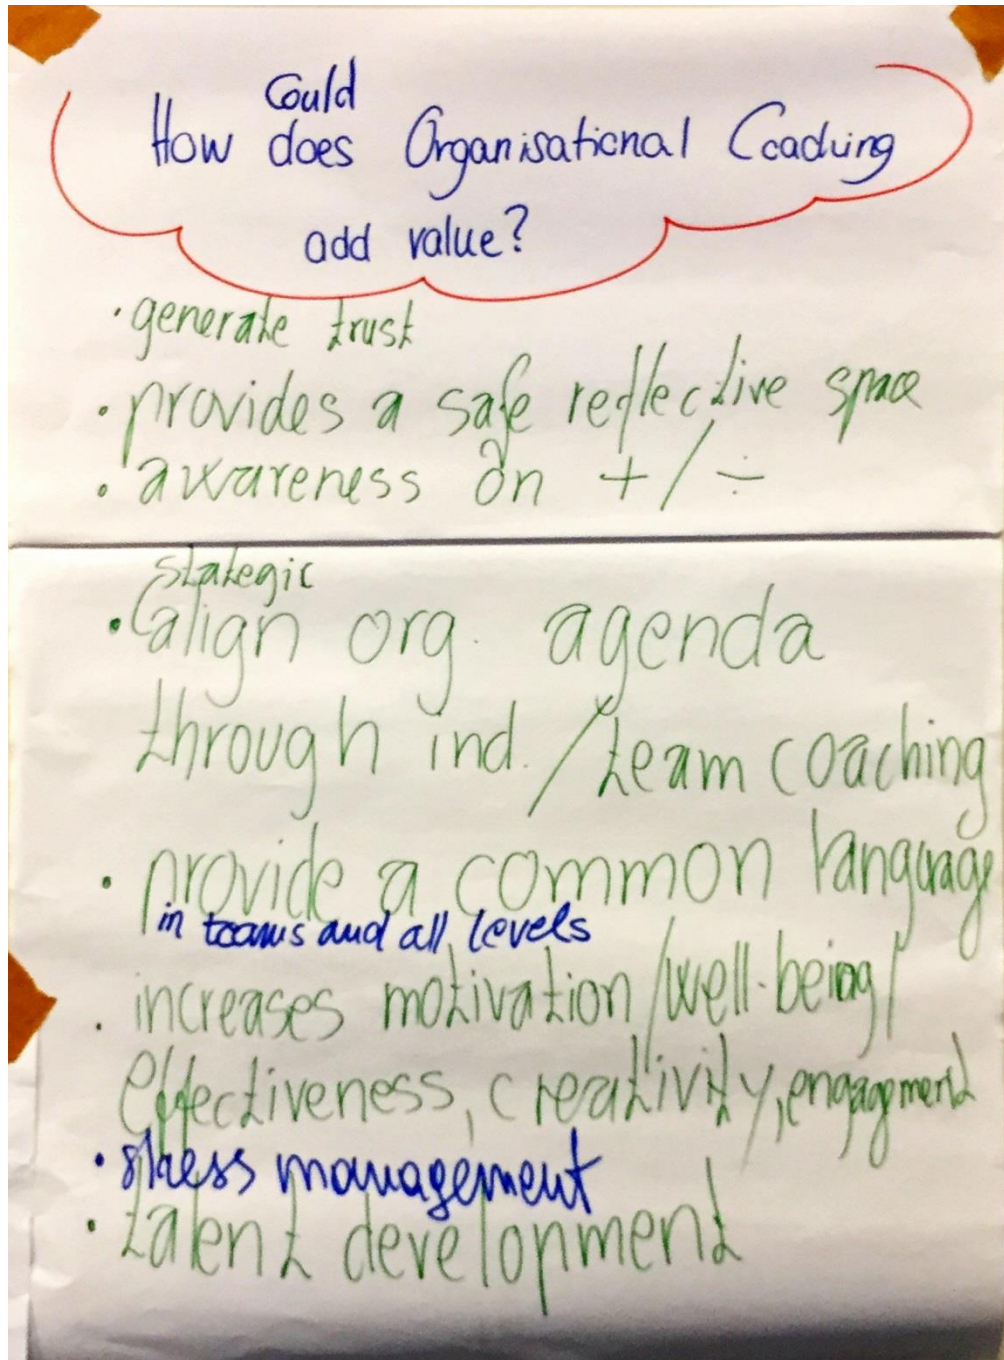 Could
How does Organisational Coaching
add value?
· generate trust
· provides a safe reflective space
· awareness on + / ÷
stategic
· align org. agenda
through ind. / team coaching
· provide a common language
in teams and all levels
· increases motivation / well-being /
effectiveness, creativity, engagement
· stress management
· talent development